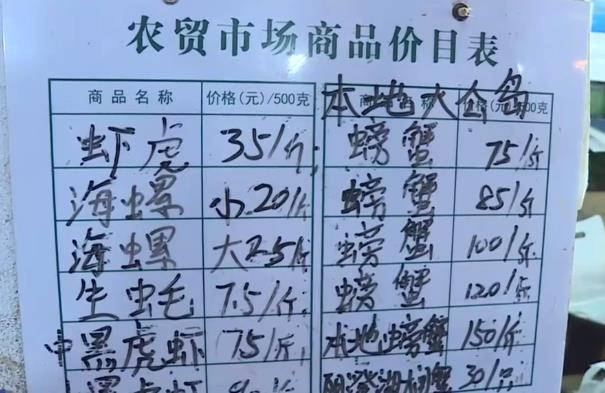 农贸市场商品价目表
商品名称 价格(元)/500克 本地大
虾虎 35/斤 螃蟹 75/斤
海螺 小20/斤 螃蟹 85/斤
海螺 大25/斤 螃蟹 100/斤
生蚝 7.5/斤 螃蟹 120/斤
中黑虎虾 75/斤 本地螃蟹 150/斤
黑虎虾 阳澄湖 30/只